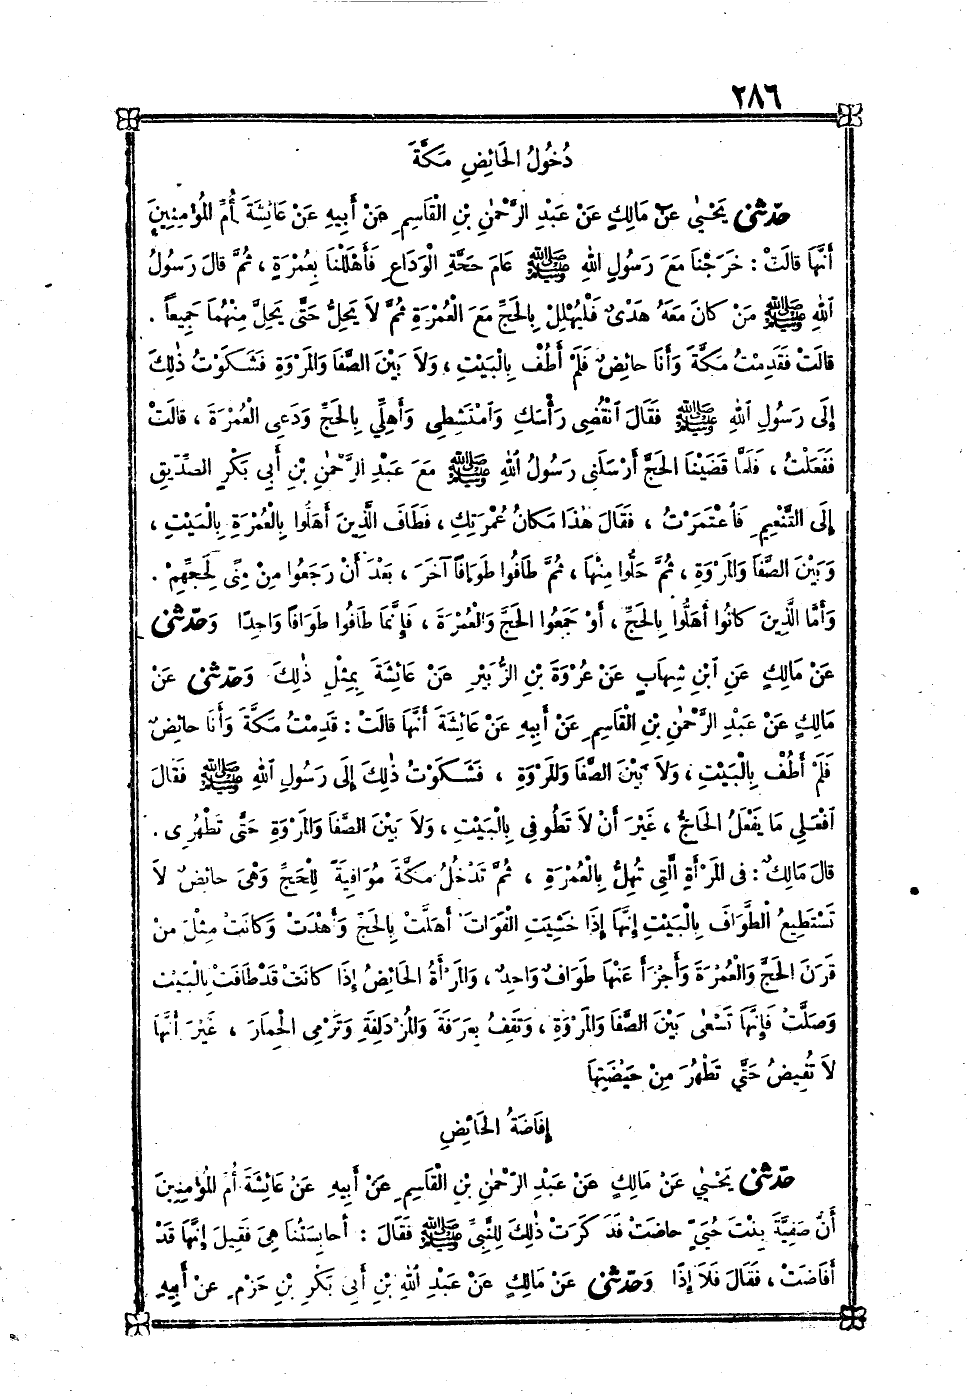 ٢٨٦
دُخُولُ الحَائِضِ مَكَّةَ
حَدَّثَنِى يَحْيٰ عَنْ مَالِكٍ عَنْ عَبْدِ الرَّحْمٰنِ بْنِ الْقَاسِمِ عَنْ أَبِيهِ عَنْ عَائِشَةَ أُمِّ المُؤْمِنِينَ
أَنَّهَا قَالَتْ : خَرَجْنَا مَعَ رَسُولِ اللهِ ﷺ عَامَ حَجَّةِ الْوَدَاعِ فَأَهْلَلْنَا بِعُمْرَةٍ ، ثُمَّ قَالَ رَسُولُ
اللهِ ﷺ مَنْ كَانَ مَعَهُ هَدْىٌ فَلْيُهْلِلْ بِالحَجِّ مَعَ الْعُمْرَةِ ثُمَّ لاَ يَحِلُّ حَتَّى يَحِلَّ مِنْهُمَا جَمِيعاً .
قَالَتْ فَقَدِمْتُ مَكَّةَ وَأَنَا حَائِضٌ فَلَمْ أَطُفْ بِالْبَيْتِ ، وَلاَ بَيْنَ الصَّفَا وَالمَرْوَةِ فَشَكَوْتُ ذٰلِكَ
إِلَى رَسُولِ اللهِ ﷺ فَقَالَ انْقُضِى رَأْسَكِ وَامْتَشِطِى وَأَهِلِّي بِالحَجِّ وَدَعِى الْعُمْرَةَ ، قَالَتْ
فَفَعَلْتُ ، فَلَمَّا قَضَيْنَا الحَجَّ أَرْسَلَنِى رَسُولُ اللهِ ﷺ مَعَ عَبْدِ الرَّحْمٰنِ بْنِ أَبِي بَكْرٍ الصِّدِّيقِ
إِلَى التَّنْعِيمِ فَاعْتَمَرْتُ ، فَقَالَ هٰذَا مَكَانُ عُمْرَتِكِ ، فَطَافَ الَّذِينَ أَهَلُّوا بِالْعُمْرَةِ بِالْبَيْتِ ،
وَبَيْنَ الصَّفَا وَالمَرْوَةِ ، ثُمَّ حَلُّوا مِنْهَا ، ثُمَّ طَافُوا طَوَافًا آخَرَ ، بَعْدَ أَنْ رَجَعُوا مِنْ مِنًى لِحَجِّهِمْ .
وَأَمَّا الَّذِينَ كَانُوا أَهَلُّوا بِالحَجِّ ، أَوْ جَمَعُوا الحَجَّ وَالْعُمْرَةَ ، فَإِنَّمَا طَافُوا طَوَافًا وَاحِدًا وَحَدَّثَنِى
عَنْ مَالِكٍ عَنِ ابْنِ شِهَابٍ عَنْ عُرْوَةَ بْنِ الزُّبَيْرِ عَنْ عَائِشَةَ بِمِثْلِ ذٰلِكَ وَحَدَّثَنِى عَنْ
مَالِكٍ عَنْ عَبْدِ الرَّحْمٰنِ بْنِ الْقَاسِمِ عَنْ أَبِيهِ عَنْ عَائِشَةَ أَنَّهَا قَالَتْ : قَدِمْتُ مَكَّةَ وَأَنَا حَائِضٌ
فَلَمْ أَطُفْ بِالْبَيْتِ ، وَلاَ بَيْنَ الصَّفَا وَالمَرْوَةِ ، فَشَكَوْتُ ذٰلِكَ إِلَى رَسُولِ اللهِ ﷺ فَقَالَ
افْعَلِي مَا يَفْعَلُ الحَاجُّ ، غَيْرَ أَنْ لاَ تَطُوفِى بِالْبَيْتِ ، وَلاَ بَيْنَ الصَّفَا وَالمَرْوَةِ حَتَّى تَطْهُرِى .
قَالَ مَالِكٌ : فِى المَرْأَةِ الَّتِى تُهِلُّ بِالْعُمْرَةِ ، ثُمَّ تَدْخُلُ مَكَّةَ مُوَافِيَةً لِلْحَجِّ وَهْىَ حَائِضٌ لاَ
تَسْتَطِيعُ الطَّوَافَ بِالْبَيْتِ إِنَّهَا إِذَا خَشِيَتِ الْفَوَاتَ أَهَلَّتْ بِالحَجِّ وَأَهْدَتْ وَكَانَتْ مِثْلَ مَنْ
قَرَنَ الحَجَّ وَالْعُمْرَةَ وَأَجْزَأَ عَنْهَا طَوَافٌ وَاحِدٌ ، وَالمَرْأَةُ الحَائِضُ إِذَا كَانَتْ قَدْ طَافَتْ بِالْبَيْتِ
وَصَلَّتْ فَإِنَّهَا تَسْعَى بَيْنَ الصَّفَا وَالمَرْوَةِ ، وَتَقِفُ بِعَرَفَةَ وَالمُزْدَلِفَةِ وَتَرْمِى الْجِمَارَ ، غَيْرَ أَنَّهَا
لاَ تُفِيضُ حَتَّى تَطْهُرَ مِنْ حَيْضَتِهَا
إِفَاضَةُ الحَائِضِ
حَدَّثَنِى يَحْيٰ عَنْ مَالِكٍ عَنْ عَبْدِ الرَّحْمٰنِ بْنِ الْقَاسِمِ عَنْ أَبِيهِ عَنْ عَائِشَةَ أُمِّ المُؤْمِنِينَ
أَنَّ صَفِيَّةَ بِنْتَ حُيَيٍّ حَاضَتْ فَذَكَرَتْ ذٰلِكَ لِلنَّبِيِّ ﷺ فَقَالَ : أَحَابِسَتُنَا هِىَ فَقِيلَ إِنَّهَا قَدْ
أَفَاضَتْ ، فَقَالَ فَلاَ إِذًا وَحَدَّثَنِى عَنْ مَالِكٍ عَنْ عَبْدِ اللهِ بْنِ أَبِى بَكْرِ بْنِ حَزْمٍ عَنْ أَبِيهِ